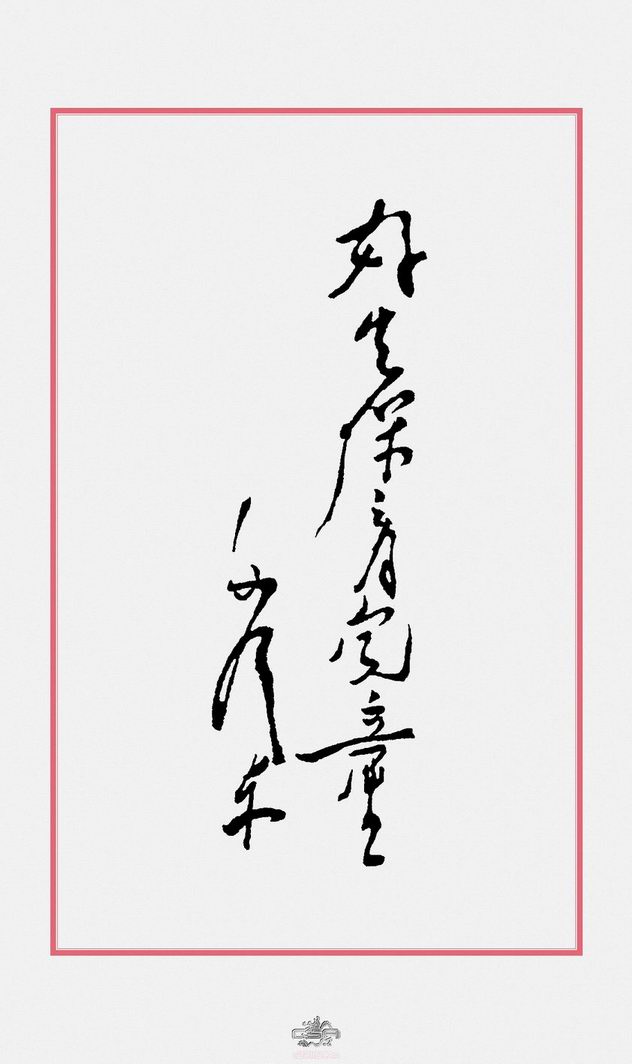 好生保育儿童
毛泽东